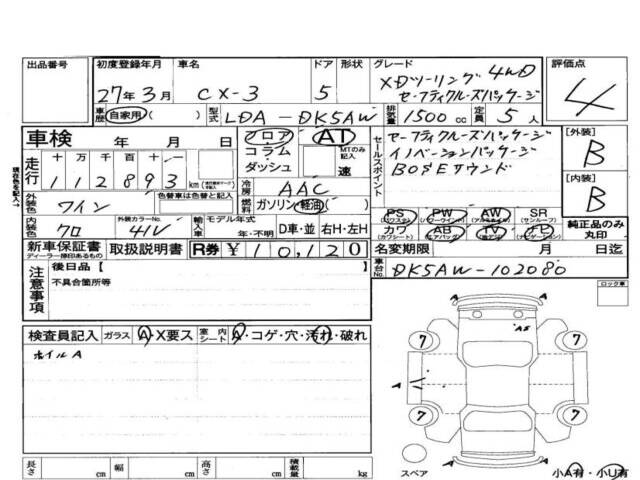 出品番号
初度登録年月 車名 ドア 形状 グレード 評価点
27年3月 CX-3 5 XDツーリング 4WD
セーフティクルーズパッケージ
4
車歴 自家用( ) 型式 LDA-DK5AW 排気量 1500cc 定員 5人
車検 年 月 日
フロア AT
コラム MTのみ記入
ダッシュ 速
セールスポイント
セーフティクルーズパッケージ
イノベーションパッケージ
BOSEサウンド
[外装]
B
[内装]
B
現在の走行を記入→
走行 十 万 千 百 十 一
112893 km
冷房 AAC
外装色 ワイン 色替車は色替と記入
燃料 ガソリン・軽油( )
内装色 クロ 外装カラーNo. 41V
輸入車 モデル年式 年・不明 D車・並 右H・左H
PS PW AW SR
(パワステ) (パワーウインド) (サンルーフ)
カワ AB TV ナビ
(カワシート) (エアバッグ) (ナビゲーション)
純正品のみ丸印
新車保証書 取扱説明書 R券 ¥10,120
ディーラー捺印あるもの
名変期限 月 日迄
車台No. DK5AW-102080
注意事項
後日品【
不具合箇所等
ロック車
検査員記入 ガラス A・X要ス 室内シート A・コゲ・穴・汚れ・破れ
ホイルA
A5
7 7
A
7 7
スペア
長さ cm 幅 cm 高さ cm 積載量 kg
小A有・小U有